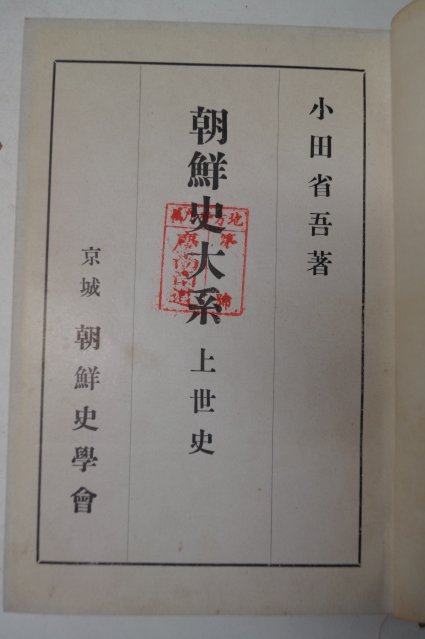 小田省吾著
朝鮮史大系 上世史
京城 朝鮮史學會